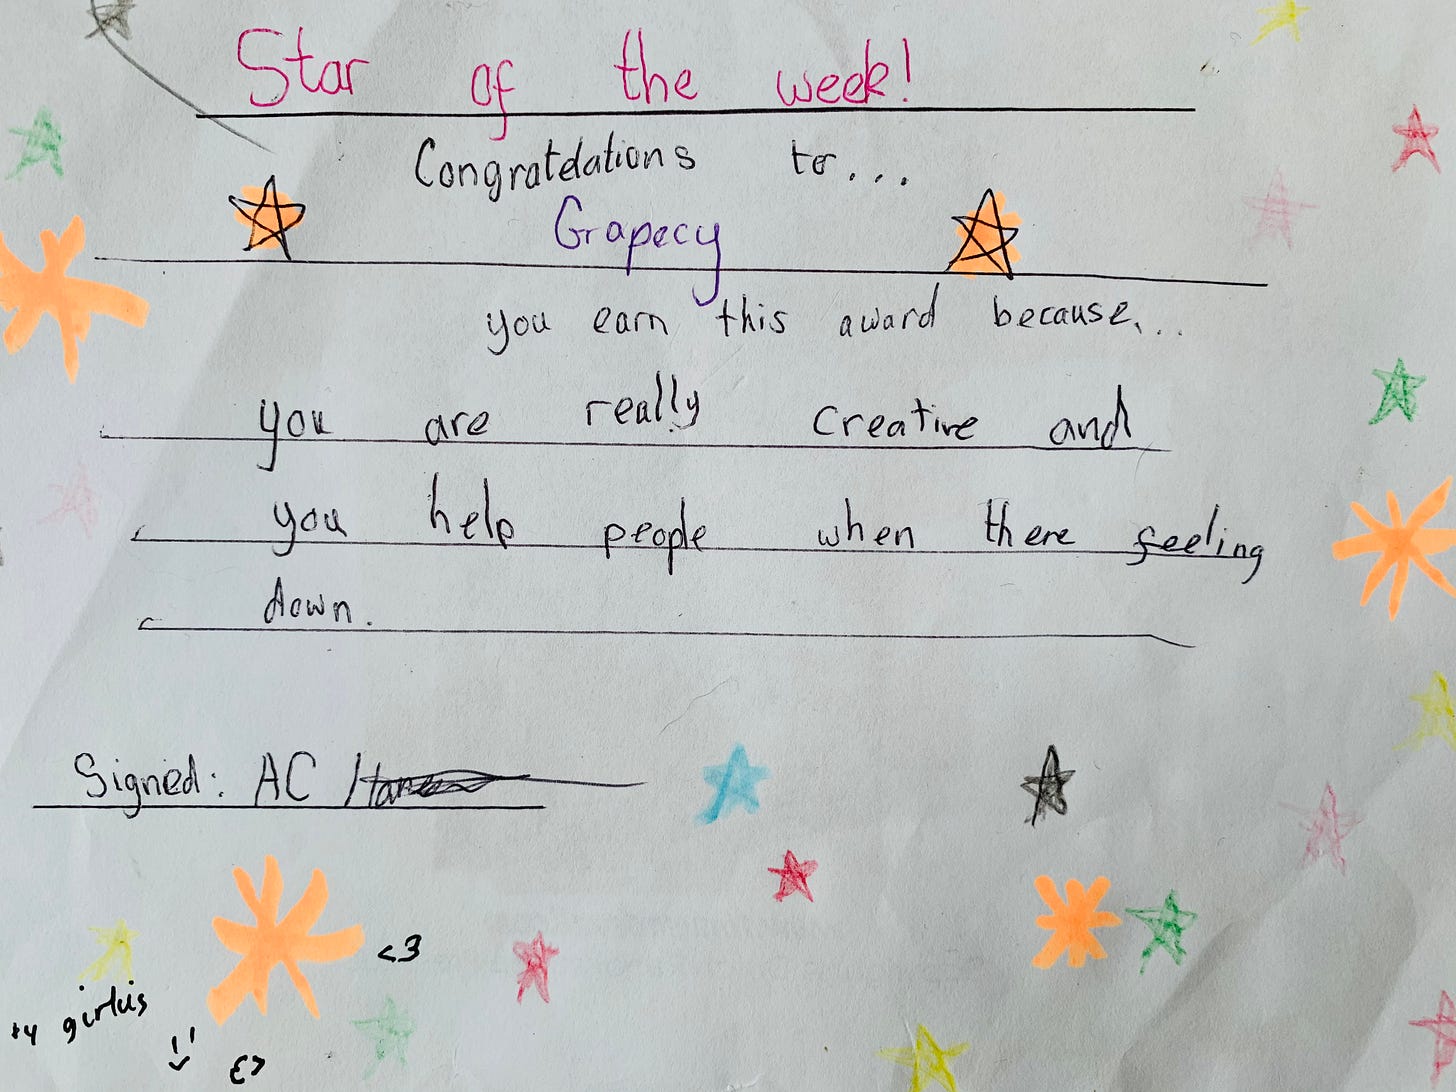 Star of the week!
Congratdations to...
Grapecy
you earn this award because...
you are really creative and
you help people when there feeling
down.
Signed: AC
<3
ty girlies
:)
ε>